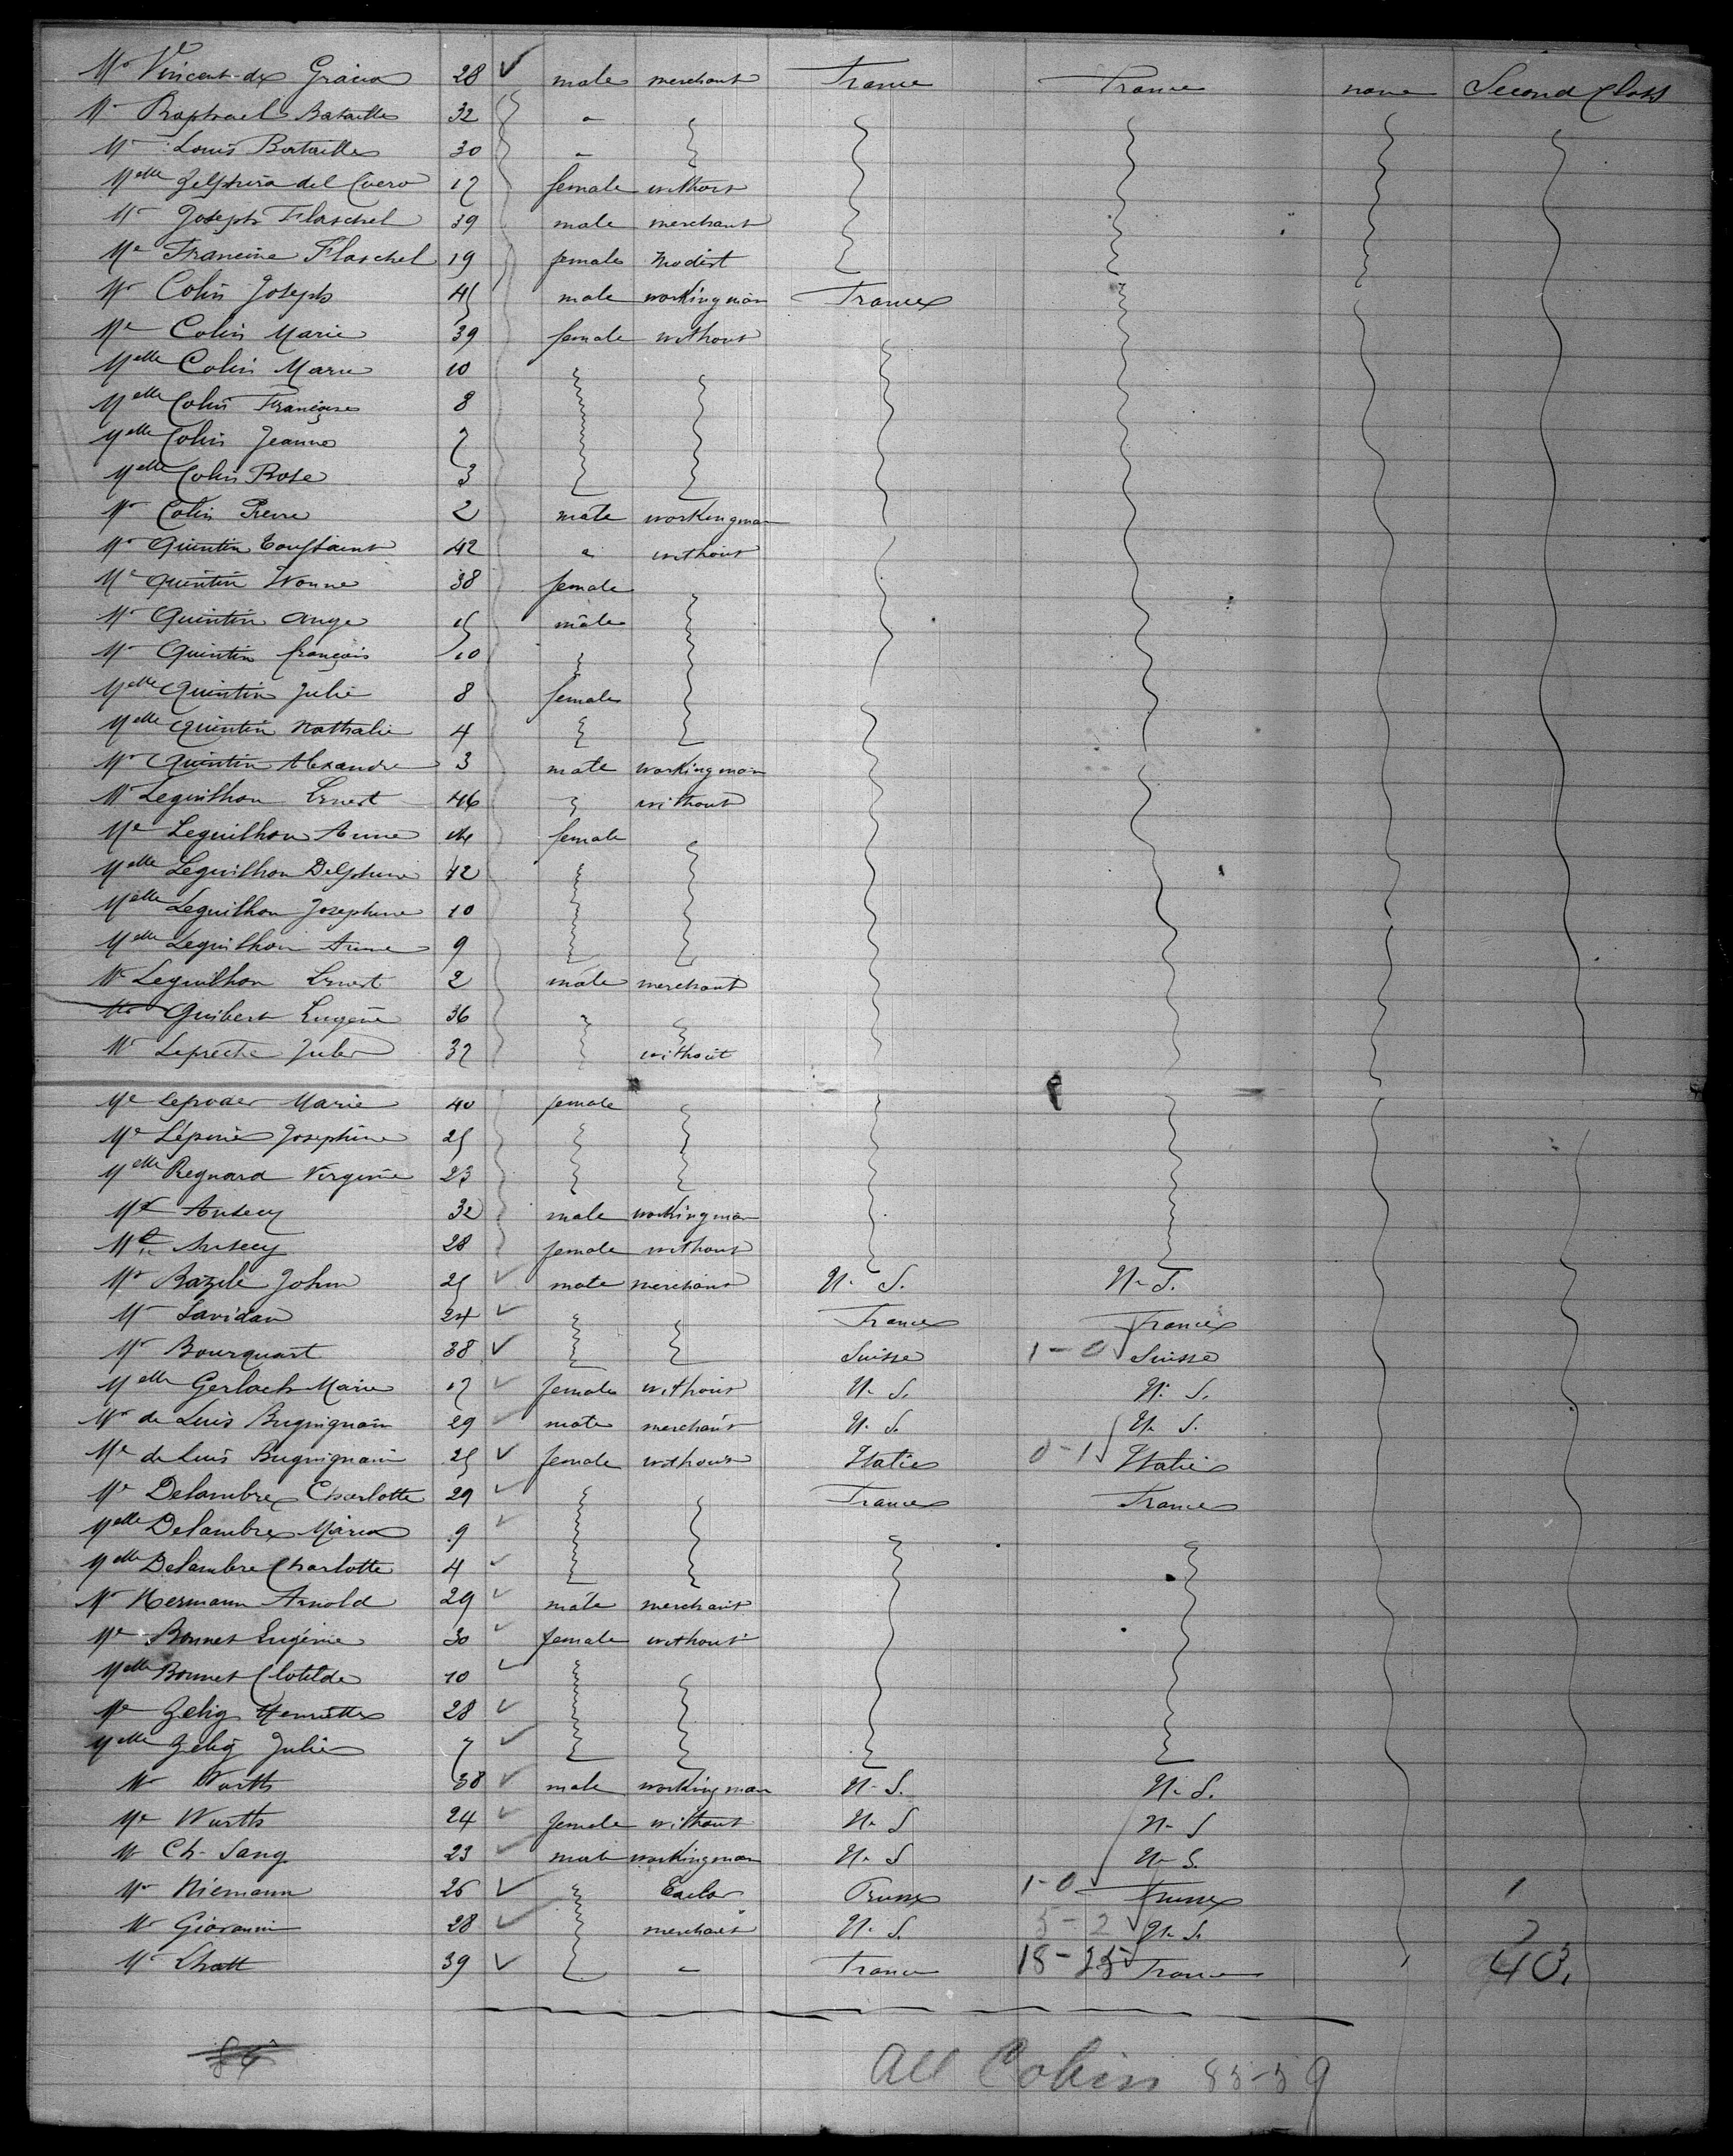 Mr Vincent de Graiva 28 male merchant France France none Second Class
Mr Raphael Bataille 32 "
Mr Louis Bataille 30 "
Melle Zelphira del Cuero 17 female without
Mr Joseph Flaschel 39 male merchant
Me Francine Flaschel 19 female Modist
Mr Colin Joseph 45 male workingman France
Me Colin Marie 39 female without
Melle Colin Marie 10
Melle Colin Françoise 8
Melle Colin Jeanne 7
Melle Colin Rose 3
Mr Colin Pierre 2 male workingman
Mr Quintin Toussaint 42 " without
Me Quintin Yvonne 38 female
Mr Quintin Ange 15 male
Mr Quintin François 10
Melle Quintin Julie 8 female
Melle Quintin Nathalie 4
Mr Quintin Alexandre 3 male workingman
Mr Leguilhon Ernest 46 without
Me Leguilhon Anne female
Melle Leguilhon Delphine 12
Melle Leguilhon Josephine 10
Melle Leguilhon Anne 9
Mr Leguilhon Ernest 2 male merchant
Mr Guibert Eugène 36
Mr Leprêche Jules 37 without
Me Marie 40 female
Me Lépine Josephine 25
Melle Regnard Virginie 23
Mr Ansecy 32 male workingman
Me Ansecy 28 female without
Mr Bazile John 25 male merchant U. S. U. S.
Mr Lavidan 24 France France
Mr Bourquart 38 Suisse 1-0 Suisse
Melle Gerlach Marie 17 female without U. S. U. S.
Mr de Luis Buquignain 29 male merchant U. S. U. S.
Me de Luis Buquignain 25 female without Italie 0-1 Italie
Me Delambre Charlotte 29 France France
Melle Delambre Maria 9
Melle Delambre Charlotte 4
Mr Hermann Arnold 29 male merchant
Me Bonnet Eugénie 30 female without
Melle Bonnet Clotilde 10
Me Zelig Henriette 28
Melle Zelig Julie 7
Mr Wurth 38 male workingman U. S. U. S.
Me Wurth 24 female without U. S U. S
Mr Ch. Sang 23 male workingman U. S U. S.
Mr Niemann 26 Tailor Prusse 1-0 Prusse 1
Mr Giovanni 28 merchant U. S. 5-2 U. S. 7
Mr Chatt 39 " France 18-25 France 43.
84 All Cabin 83-59